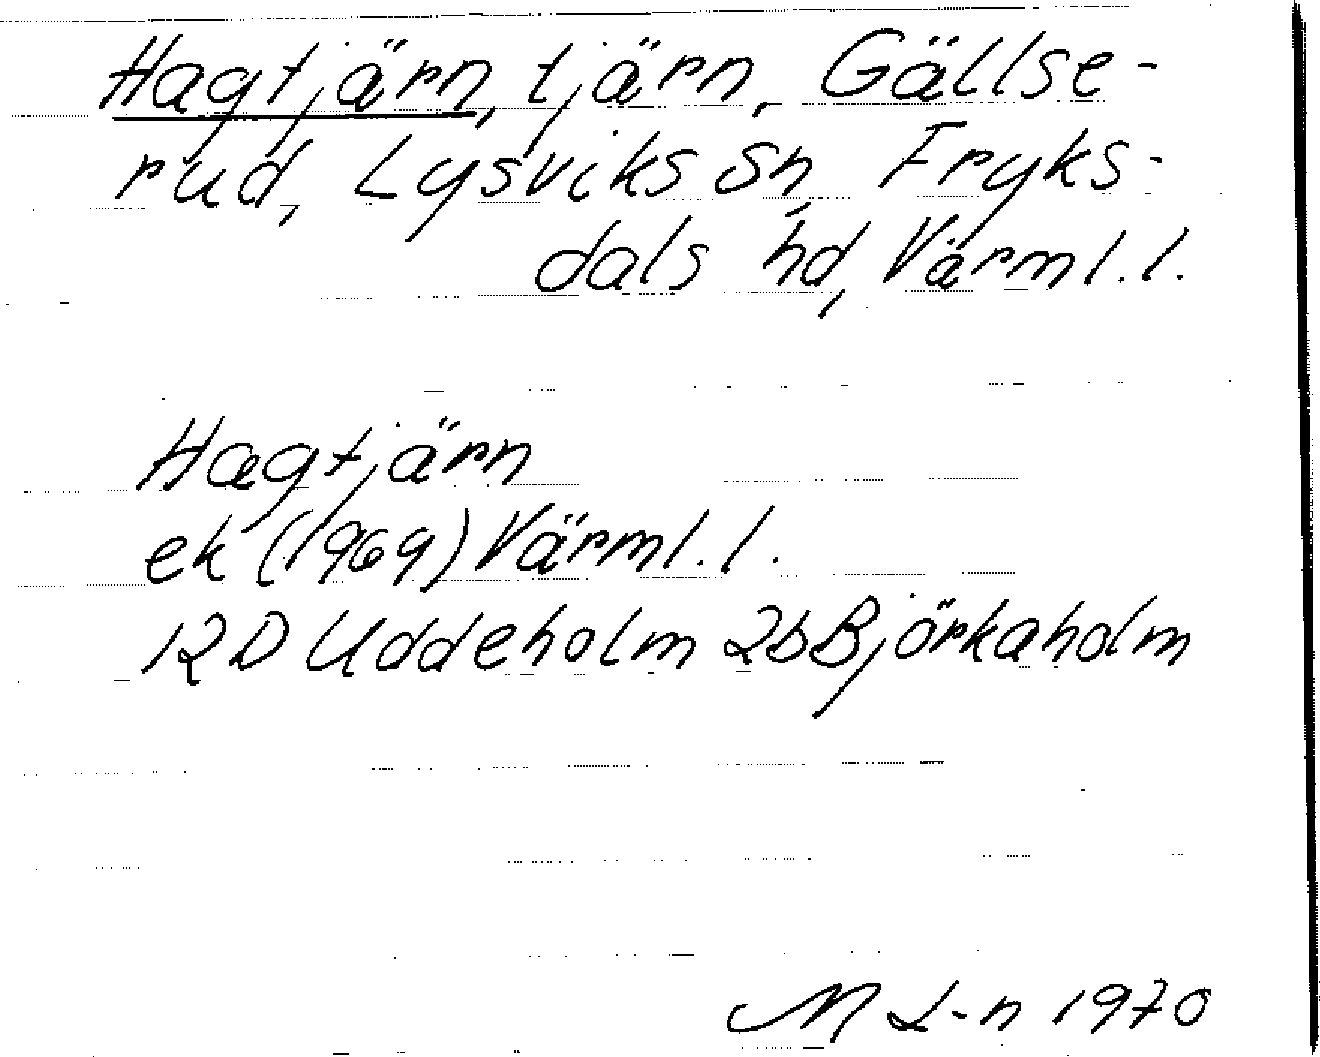 Hagtjärn, tjärn, Gällse-
rud, Lysviks sn, Fryks-
dals hd, Värml.l.
Hagtjärn
ek (1969) Värml.l.
12D Uddeholm 2b Björkaholm
M L-n 1970